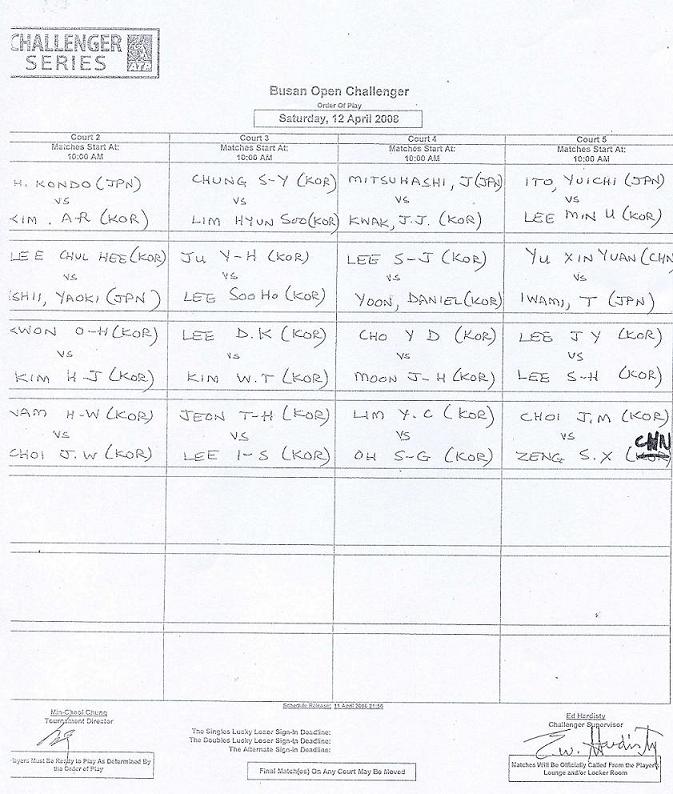 CHALLENGER
SERIES
ATP
Busan Open Challenger
Order Of Play
Saturday, 12 April 2008
Court 2
Matches Start At:
10:00 AM
H. KONDO (JPN)
VS
KIM . A-R (KOR)
LEE CHUL HEE (KOR)
VS
ISHII, YAOKI (JPN)
KWON O-H (KOR)
VS
KIM H-J (KOR)
NAM H-W (KOR)
VS
CHOI J.W (KOR)
Court 3
Matches Start At:
10:00 AM
CHUNG S-Y (KOR)
VS
LIM HYUN SOO (KOR)
JU Y-H (KOR)
VS
LEE SOO HO (KOR)
LEE D.K (KOR)
VS
KIM W.T (KOR)
JEON T-H (KOR)
VS
LEE I-S (KOR)
Court 4
Matches Start At:
10:00 AM
MITSUHASHI, J (JPN)
VS
KWAK, J.J. (KOR)
LEE S-J (KOR)
VS
YOON, DANIEL (KOR)
CHO Y D (KOR)
VS
MOON J-H (KOR)
LIM Y.C (KOR)
VS
OH S-G (KOR)
Court 5
Matches Start At:
10:00 AM
ITO, YUICHI (JPN)
VS
LEE MIN U (KOR)
YU XIN YUAN (CHN
VS
IWAMI, T (JPN)
LEE J Y (KOR)
VS
LEE S-H (KOR)
CHOI J.M (KOR)
VS
ZENG S.X (CHN
Schedule Release: 11 April 2008
Min-Cheol Chung
Tournament Director
ayers Must Be Ready to Play As Determined By
the Order of Play
The Singles Lucky Loser Sign-In Deadline:
The Doubles Lucky Loser Sign-In Deadline:
The Alternate Sign-In Deadline:
Final Match(es) On Any Court May Be Moved
Ed Hardisty
Challenger Supervisor
E.W. Hardisty
Matches Will Be Officially Called From the Players
Lounge and/or Locker Room